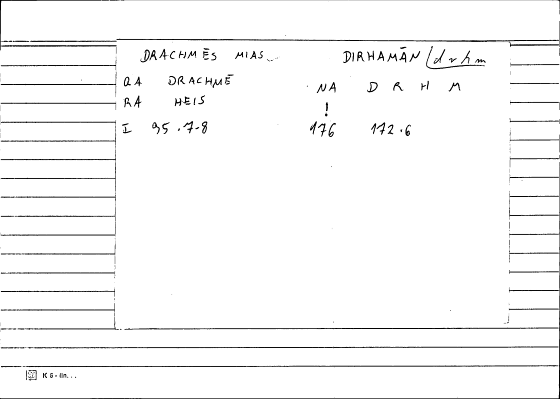 DRACHMĒS MIAS.. DIRHAMĀN / drhm
QA DRACHMĒ NA D R H M
RA HEIS !
I 95.7-8 176 172.6
K 5 - lin...